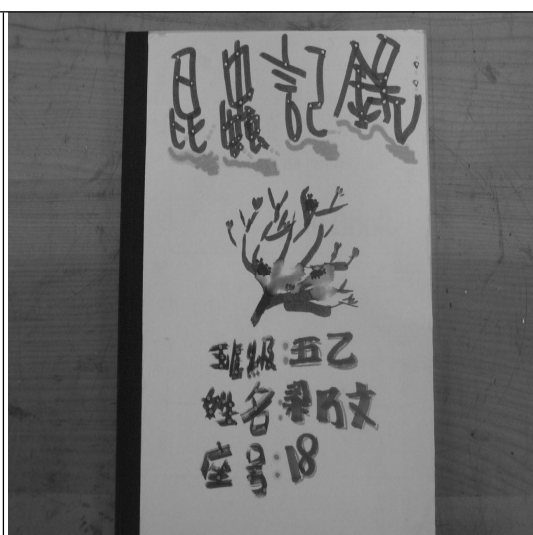 昆蟲記錄
班級:五乙
姓名:梁乃文
座号:18